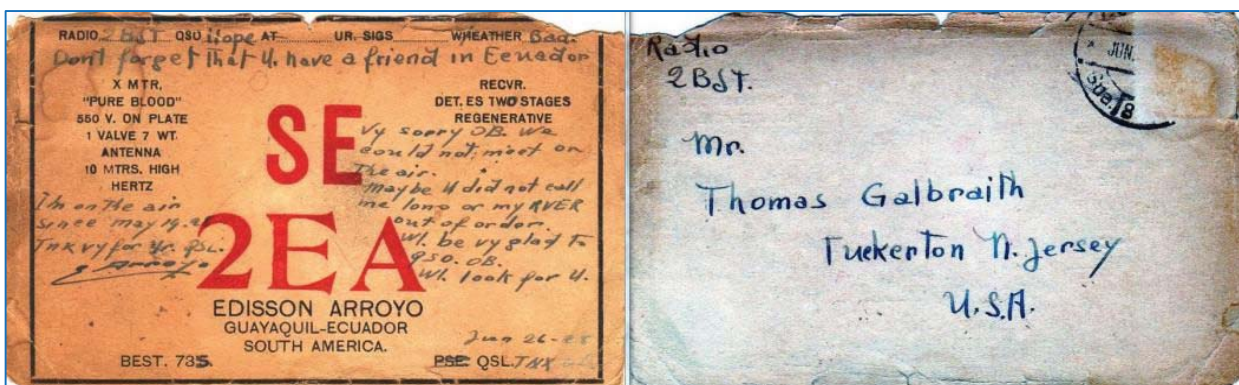 RADIO 2BST QSU Hope AT UR. SIGS WHEATHER Bad.
Don't forget that U. have a friend in Ecuador
X MTR.
"PURE BLOOD"
550 V. ON PLATE
1 VALVE 7 WT.
ANTENNA
10 MTRS. HIGH
HERTZ
I'm on the air
since may 19.
TNX vy for Ur. QSL.
E Arroyo
SE
2EA
RECVR.
DET. ES TWO STAGES
REGENERATIVE
Vy sorry OB. We
could not, meet on
the air.
maybe U did not call
me long or my RVER
out of order.
Wl. be vy glad to
QSO. OB.
Wl. look for U.
EDISSON ARROYO
GUAYAQUIL-ECUADOR
SOUTH AMERICA.
Jun 26-28
BEST. 73S. PSE QSL. TNX
Radio
2BST.
JUN.
Mr.
Thomas Galbraith
Tuckerton N. Jersey
U.S.A.